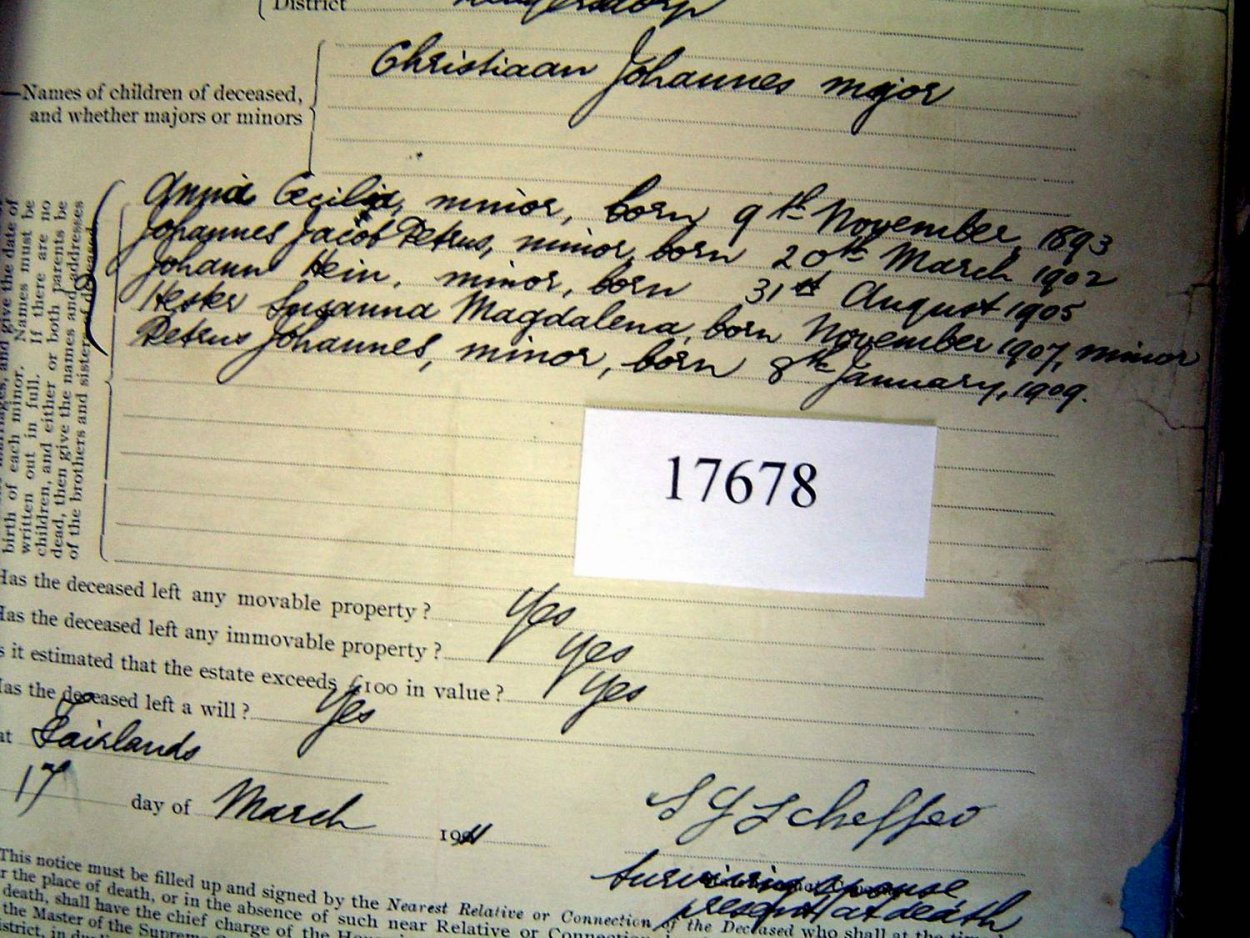 District
Names of children of deceased,
and whether majors or minors
Christiaan Johannes major
Annie Cecilia, minor, born 9th November, 1893
Johannes Jacob Petrus, minor, born 20th March 1902
Johann Hein, minor, born 31st August 1905
Hester Susanna Magdalena, born November 1907, minor
Petrus Johannes, minor, born 8th January, 1909.
and give the date of
birth of each minor. Names must be
written out in full. If there are no
children, and either or both parents be
dead, then give the names and addresses
of the brothers and sisters of deceased
17678
Has the deceased left any movable property? Yes
Has the deceased left any immovable property? Yes
Is it estimated that the estate exceeds £100 in value? Yes
Has the deceased left a will? Yes
at Fairlands
17 day of March 1911
Scheffer
Surviving spouse
present at death
This notice must be filled up and signed by the Nearest Relative or Connection of the Deceased who shall at the
the place of death, or in the absence of such near Relative or
death, shall have the chief charge of the
the Master of the Supreme